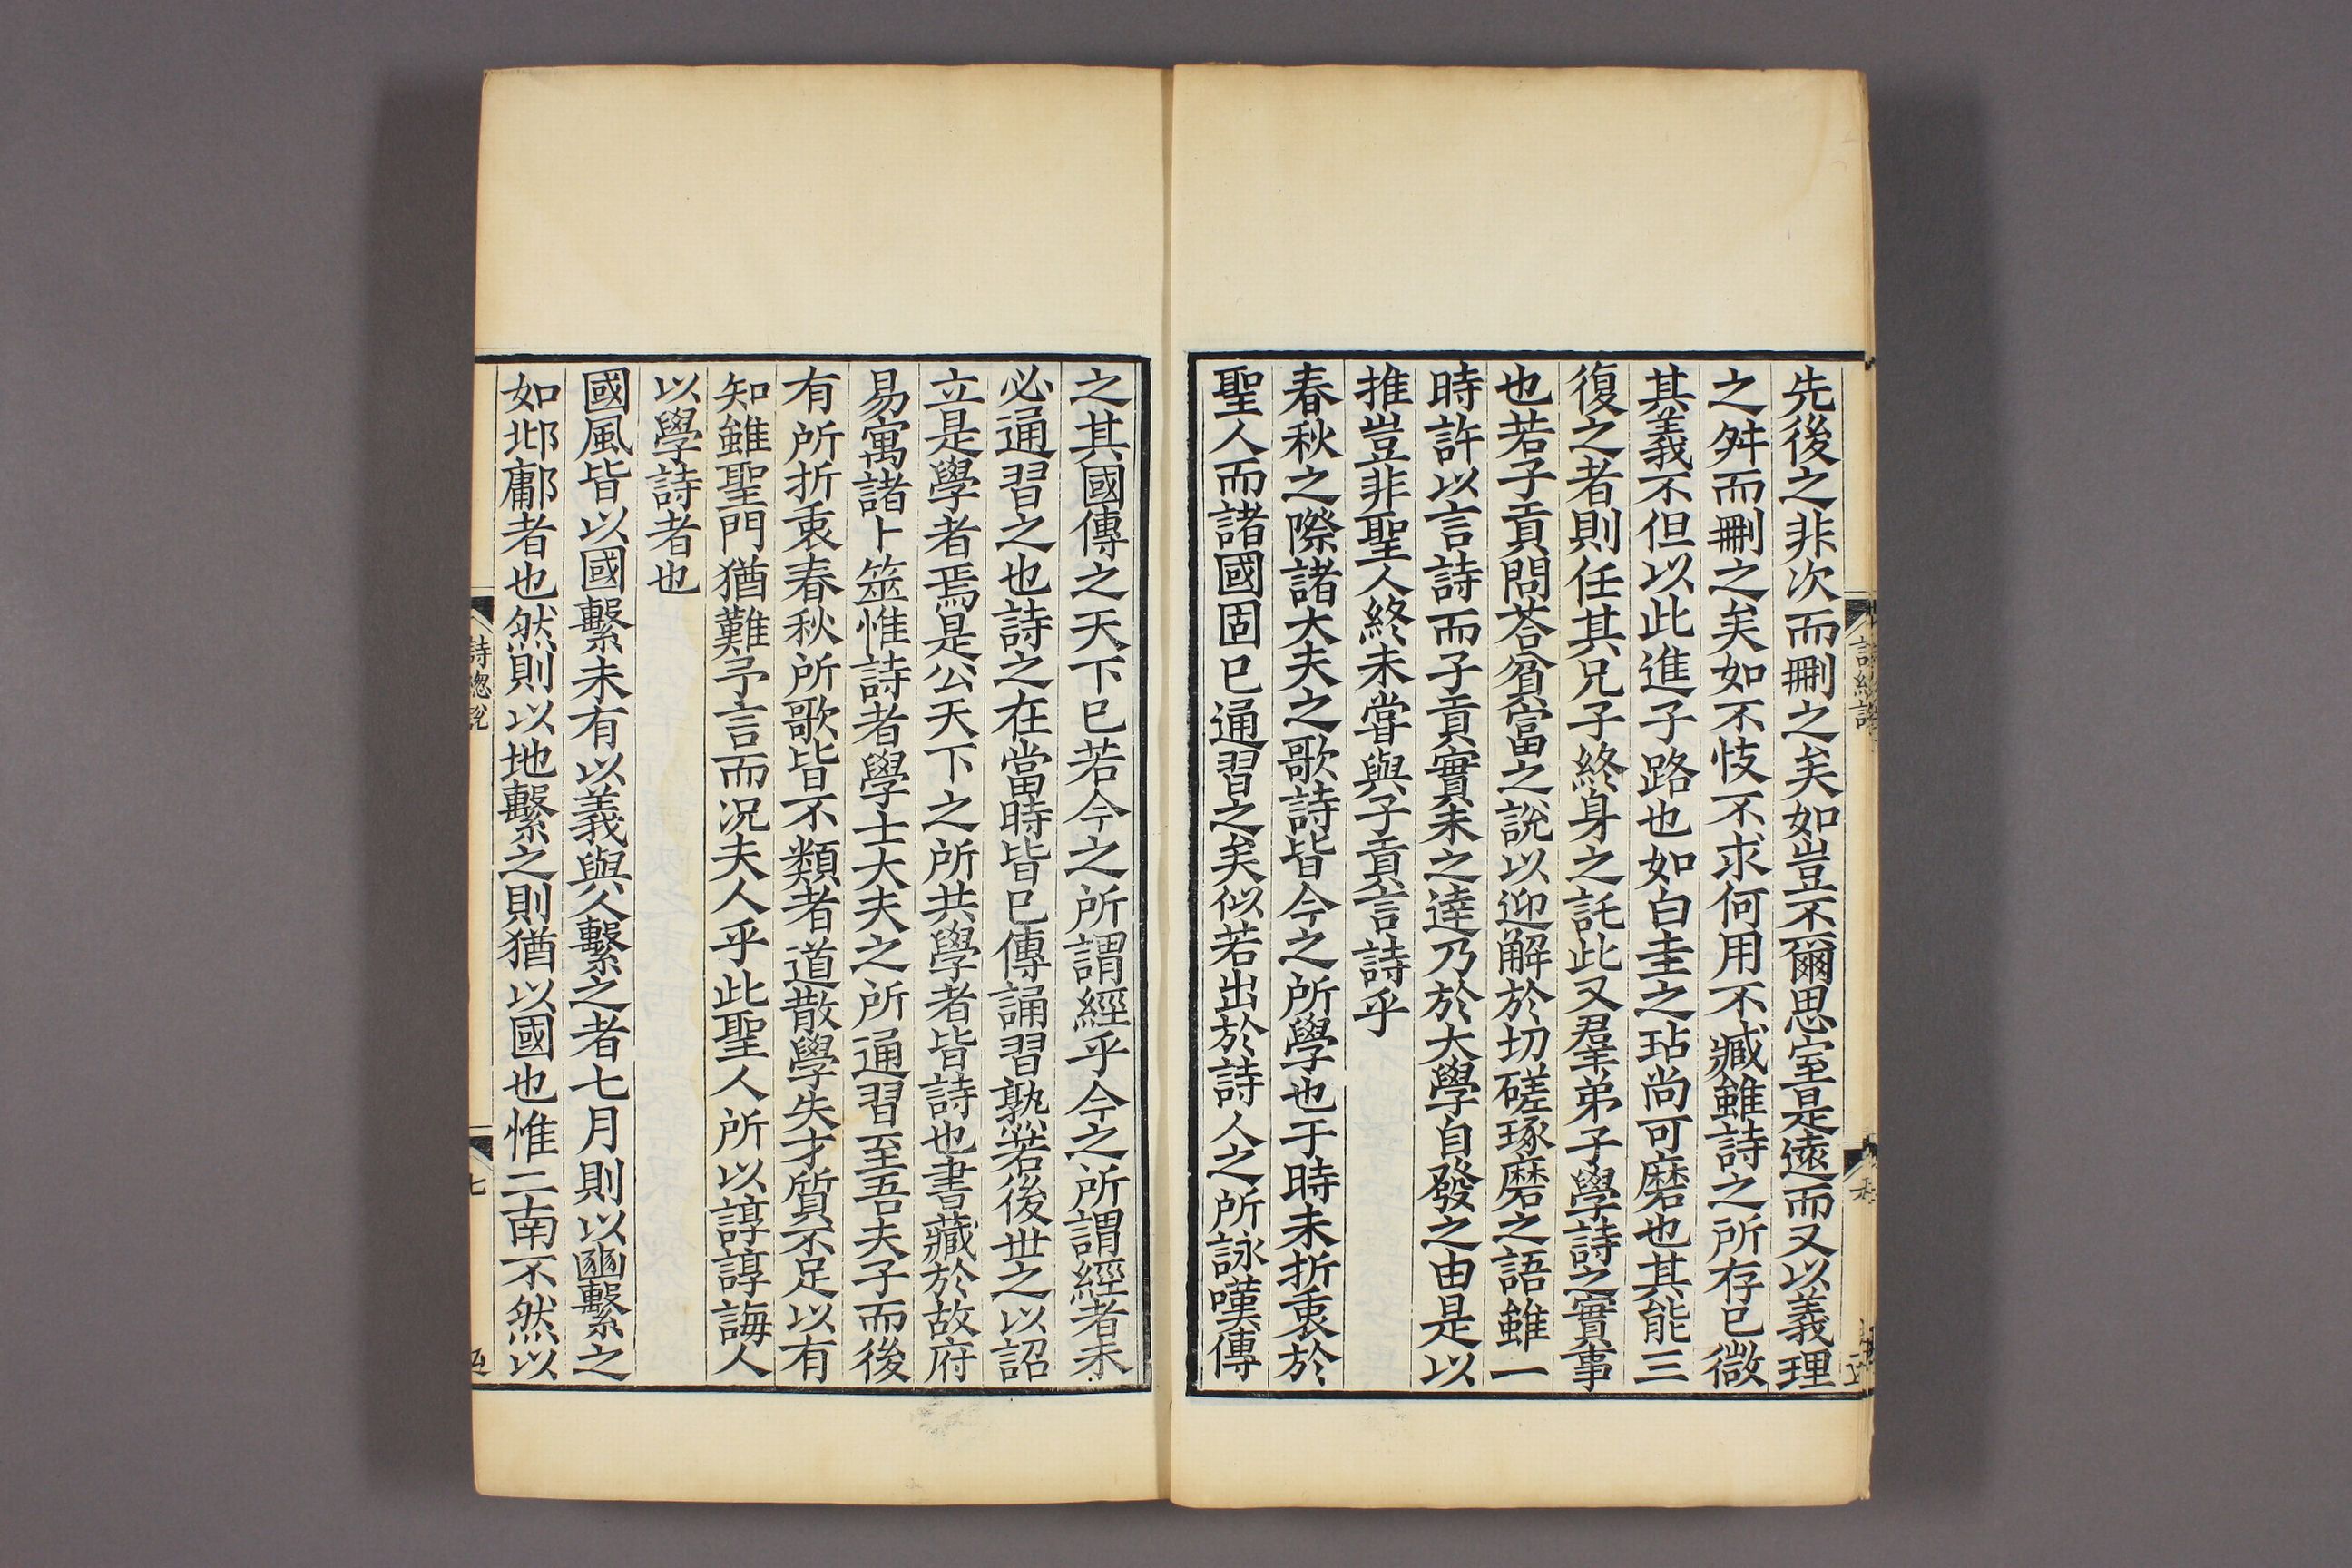 先後之非次而刪之矣如豈不爾思室是遠而又以義理
之舛而刪之矣如不忮不求何用不臧雖詩之所存已微
其義不但以此進子路也如白圭之玷尚可磨也其能三
復之者則任其兄子終身之託此又羣弟子學詩之實事
也若子貢問荅貧富之說以迎解於切磋琢磨之語雖一
時許以言詩而子貢實未之達乃於大學自發之由是以
推豈非聖人終未嘗與子貢言詩乎
春秋之際諸大夫之歌詩皆今之所學也于時未折衷於
聖人而諸國固已通習之矣似若出於詩人之所詠嘆傳
之其國傳之天下已若今之所謂經乎今之所謂經者未
必通習之也詩之在當時皆已傳誦習孰若後世之以詔
立是學者焉是公天下之所共學者皆詩也書藏於故府
易寓諸卜筮惟詩者學士大夫之所通習至吾夫子而後
有所折衷春秋所歌皆不類者道散學失才質不足以有
知雖聖門猶難予言而況夫人乎此聖人所以諄諄誨人
以學詩者也
國風皆以國繫未有以義與人繫之者七月則以豳繫之
如邶鄘者也然則以地繫之則猶以國也惟二南不然以
詩總說
七